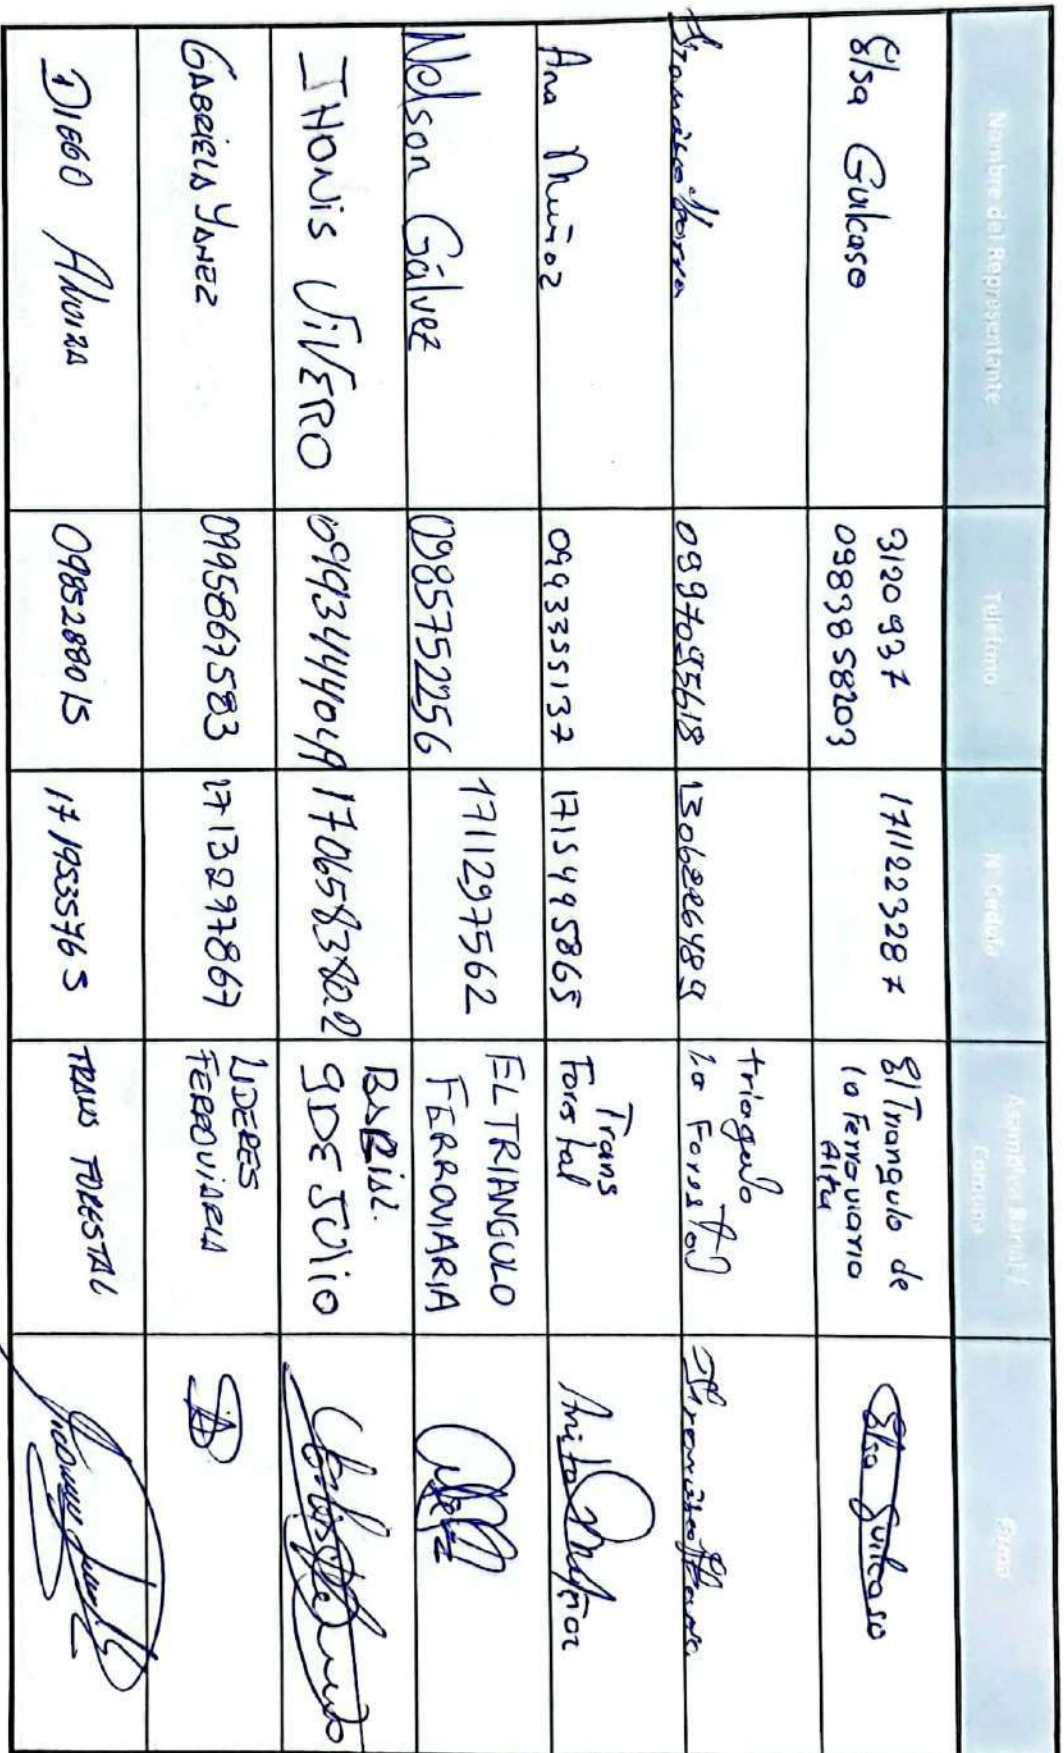 Nombre del Representante
Teléfono
N° Cédula
Asamblea Barrial /
Comuna
Firma
Elsa Guilcaso
3120937
0983858203
1711223287
El Triangulo de
la Ferroviaria
Alta
Elsa Guilcaso
0997095618
1306226489
triagulo
la Forestal
Ana Muñoz
0993355137
1715495865
Trans
Forestal
Anita Muñoz
Nelson Gálvez
0985752256
1711297562
EL TRIANGULO
FERROVIARIA
JHONIS ViVERO
0993444049
1706583802
BARRIAL.
9 DE JULIO
GABRIELA YANEZ
0995867583
1713297867
LIDERES
FERROVIARIA
DIEGO
0985288015
1719535763
TRANS FORESTAL